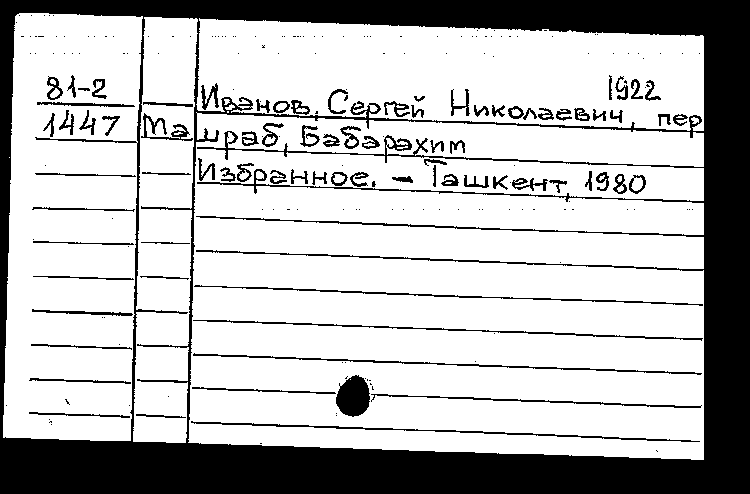 81-2 Иванов, Сергей Николаевич, пер 1922
1447 Машраб, Бабарахим
Избранное. – Ташкент, 1980